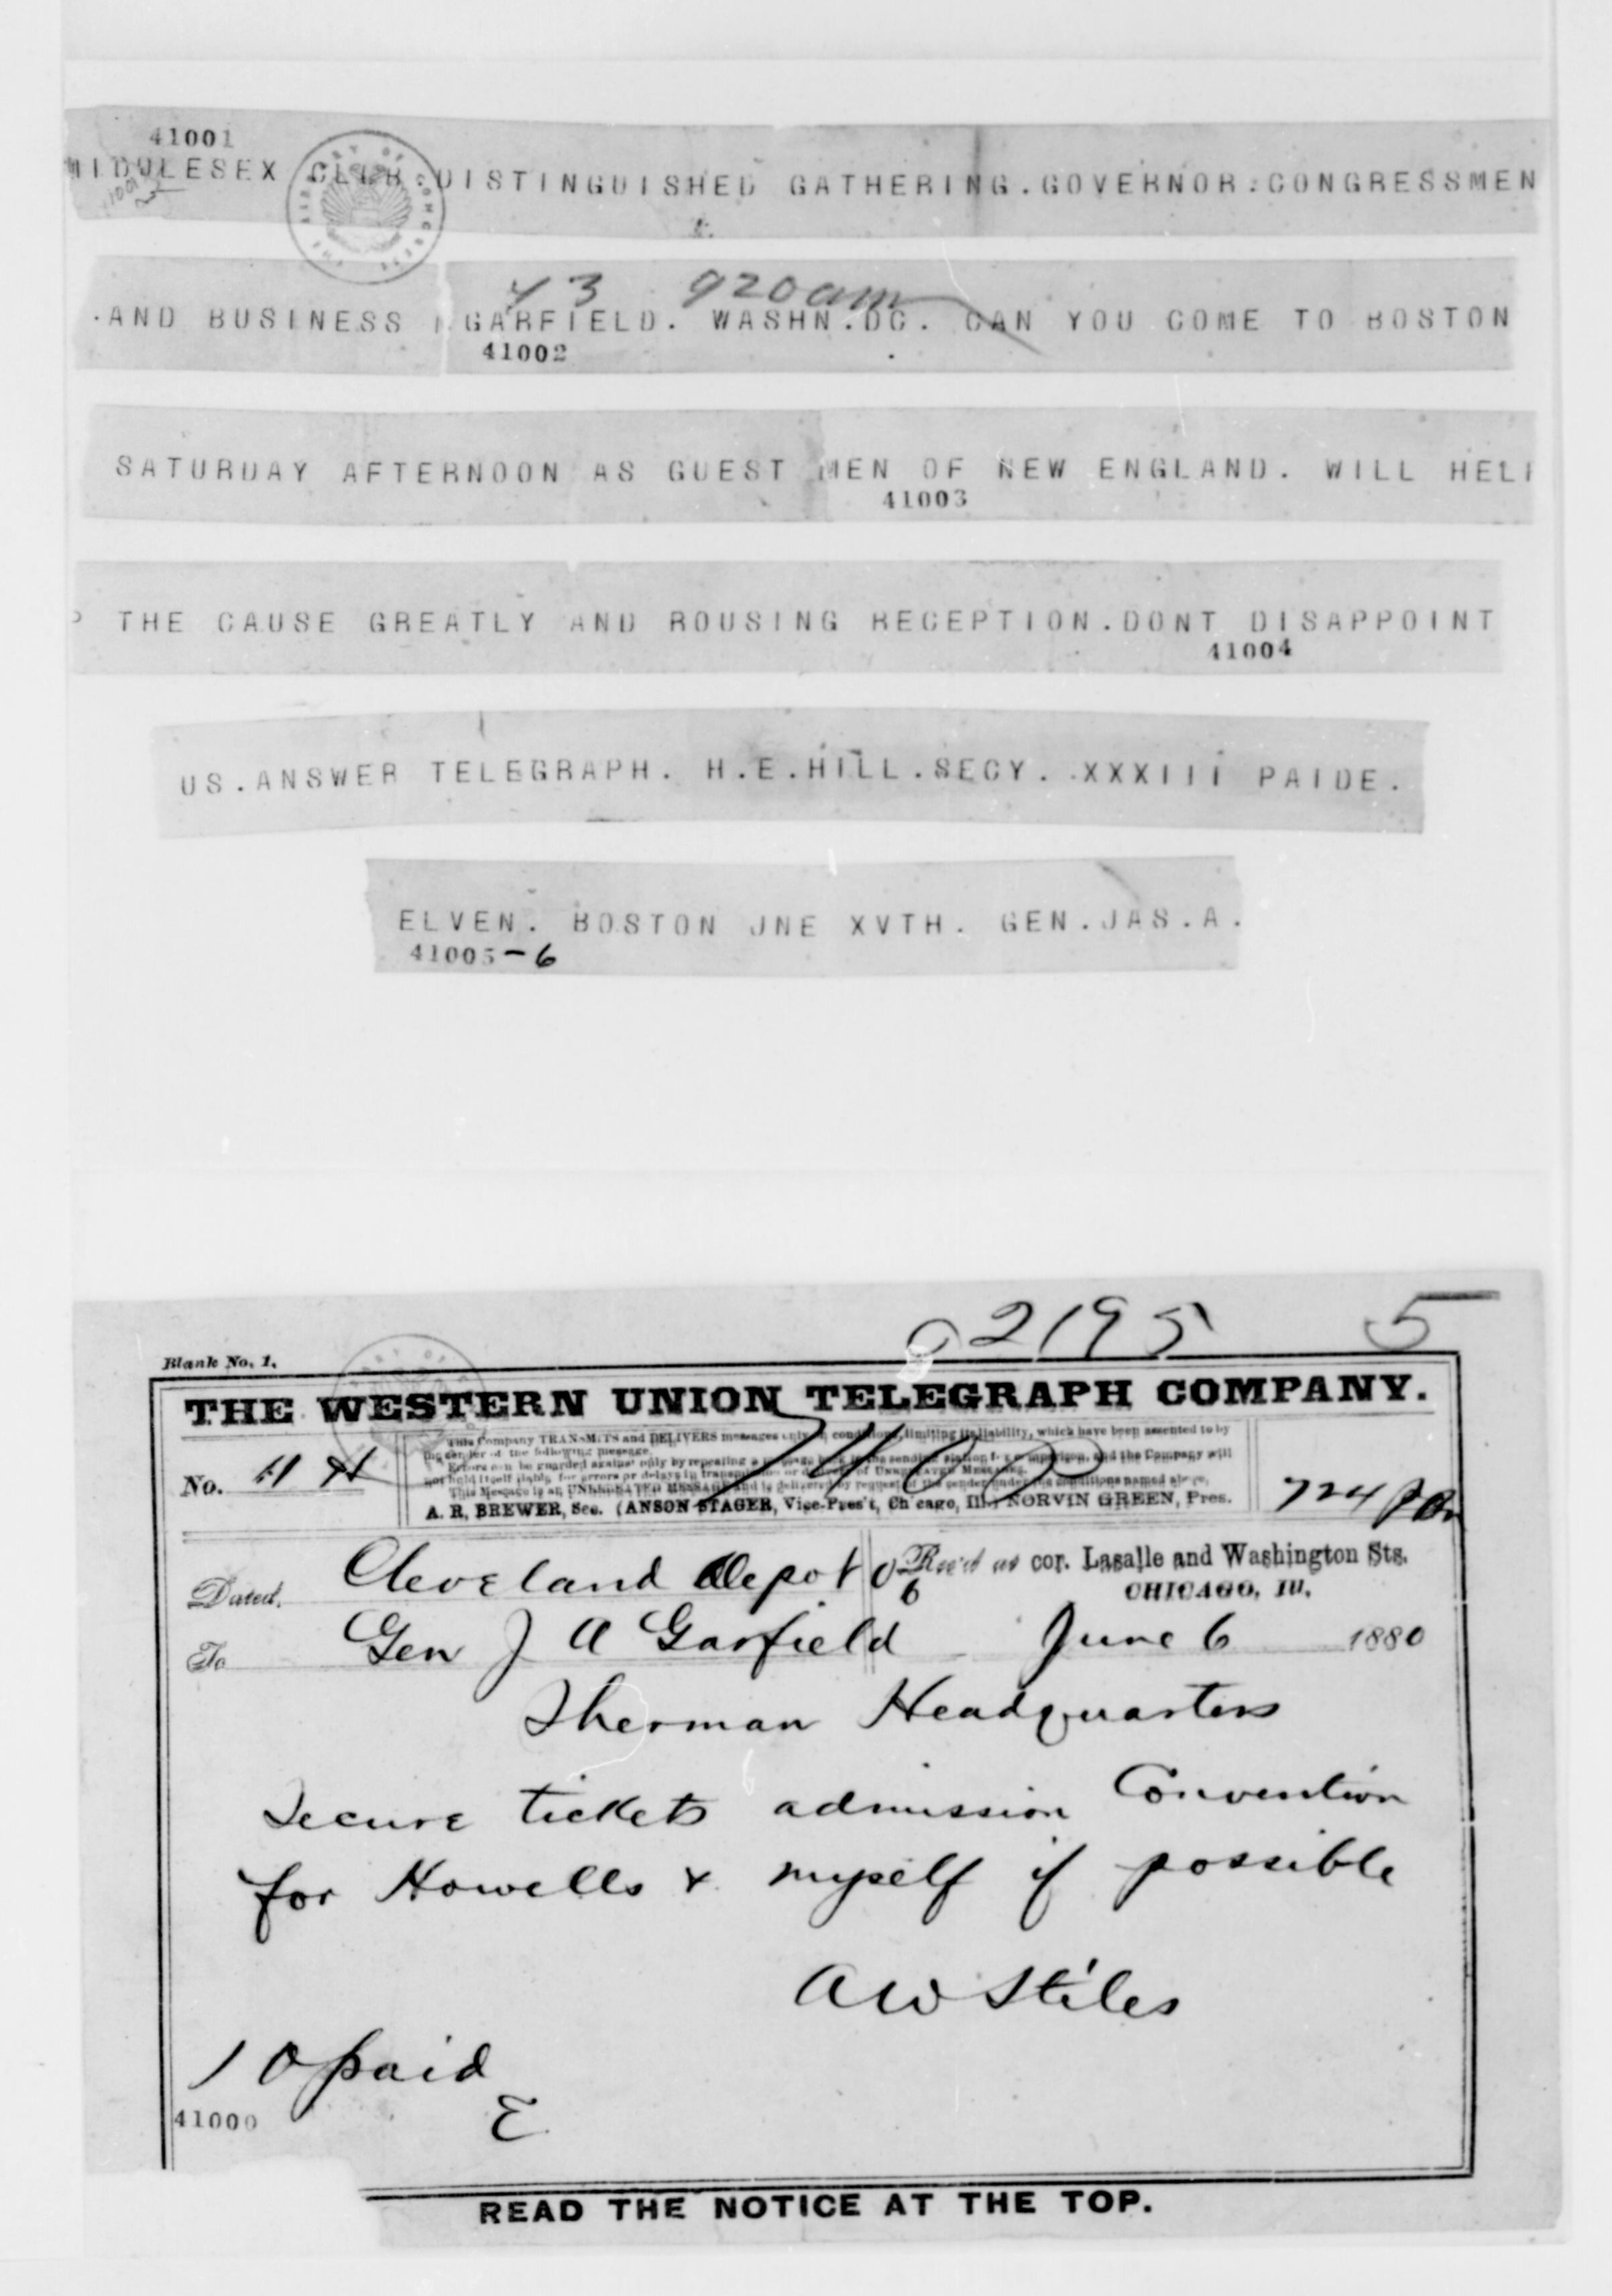 41001
MIDDLESEX CLUB.DISTINGUISHED GATHERING.GOVERNOR.CONGRESSMEN
43 920am
.AND BUSINESS GARFIELD. WASHN.DC. CAN YOU COME TO BOSTON
41002
SATURDAY AFTERNOON AS GUEST MEN OF NEW ENGLAND. WILL HEL
41003
P THE CAUSE GREATLY AND ROUSING RECEPTION.DONT DISAPPOINT
41004
US.ANSWER TELEGRAPH. H.E.HILL.SECY. .XXXIII PAIDE.
ELVEN. BOSTON JNE XVTH. GEN.JAS.A.
41005-6
2195 5
Blank No. 1.
THE WESTERN UNION TELEGRAPH COMPANY.
This Company TRANSMITS and DELIVERS messages only on conditions, limiting its liability, which have been assented to by
the sender of the following message.
Errors can be guarded against only by repeating a message back to the sending station for comparison, and the Company will
not hold itself liable for errors or delays in transmission or delivery of UNREPEATED MESSAGES.
This Message is an UNREPEATED MESSAGE and is delivered by request of the sender under the conditions named above.
No. 724 PM
A. R. BREWER, Sec. (ANSON STAGER, Vice-Pres't, Chicago, Ill.) NORVIN GREEN, Pres.
Dated, Cleveland Depot O 6 Rec'd at cor. Lasalle and Washington Sts.
CHICAGO, Ill.
To Gen J A Garfield June 6 1880
Sherman Headquarters
Secure tickets admission Convention
for Howells & myself if possible
A W Stiles
10 paid
E
41000
READ THE NOTICE AT THE TOP.